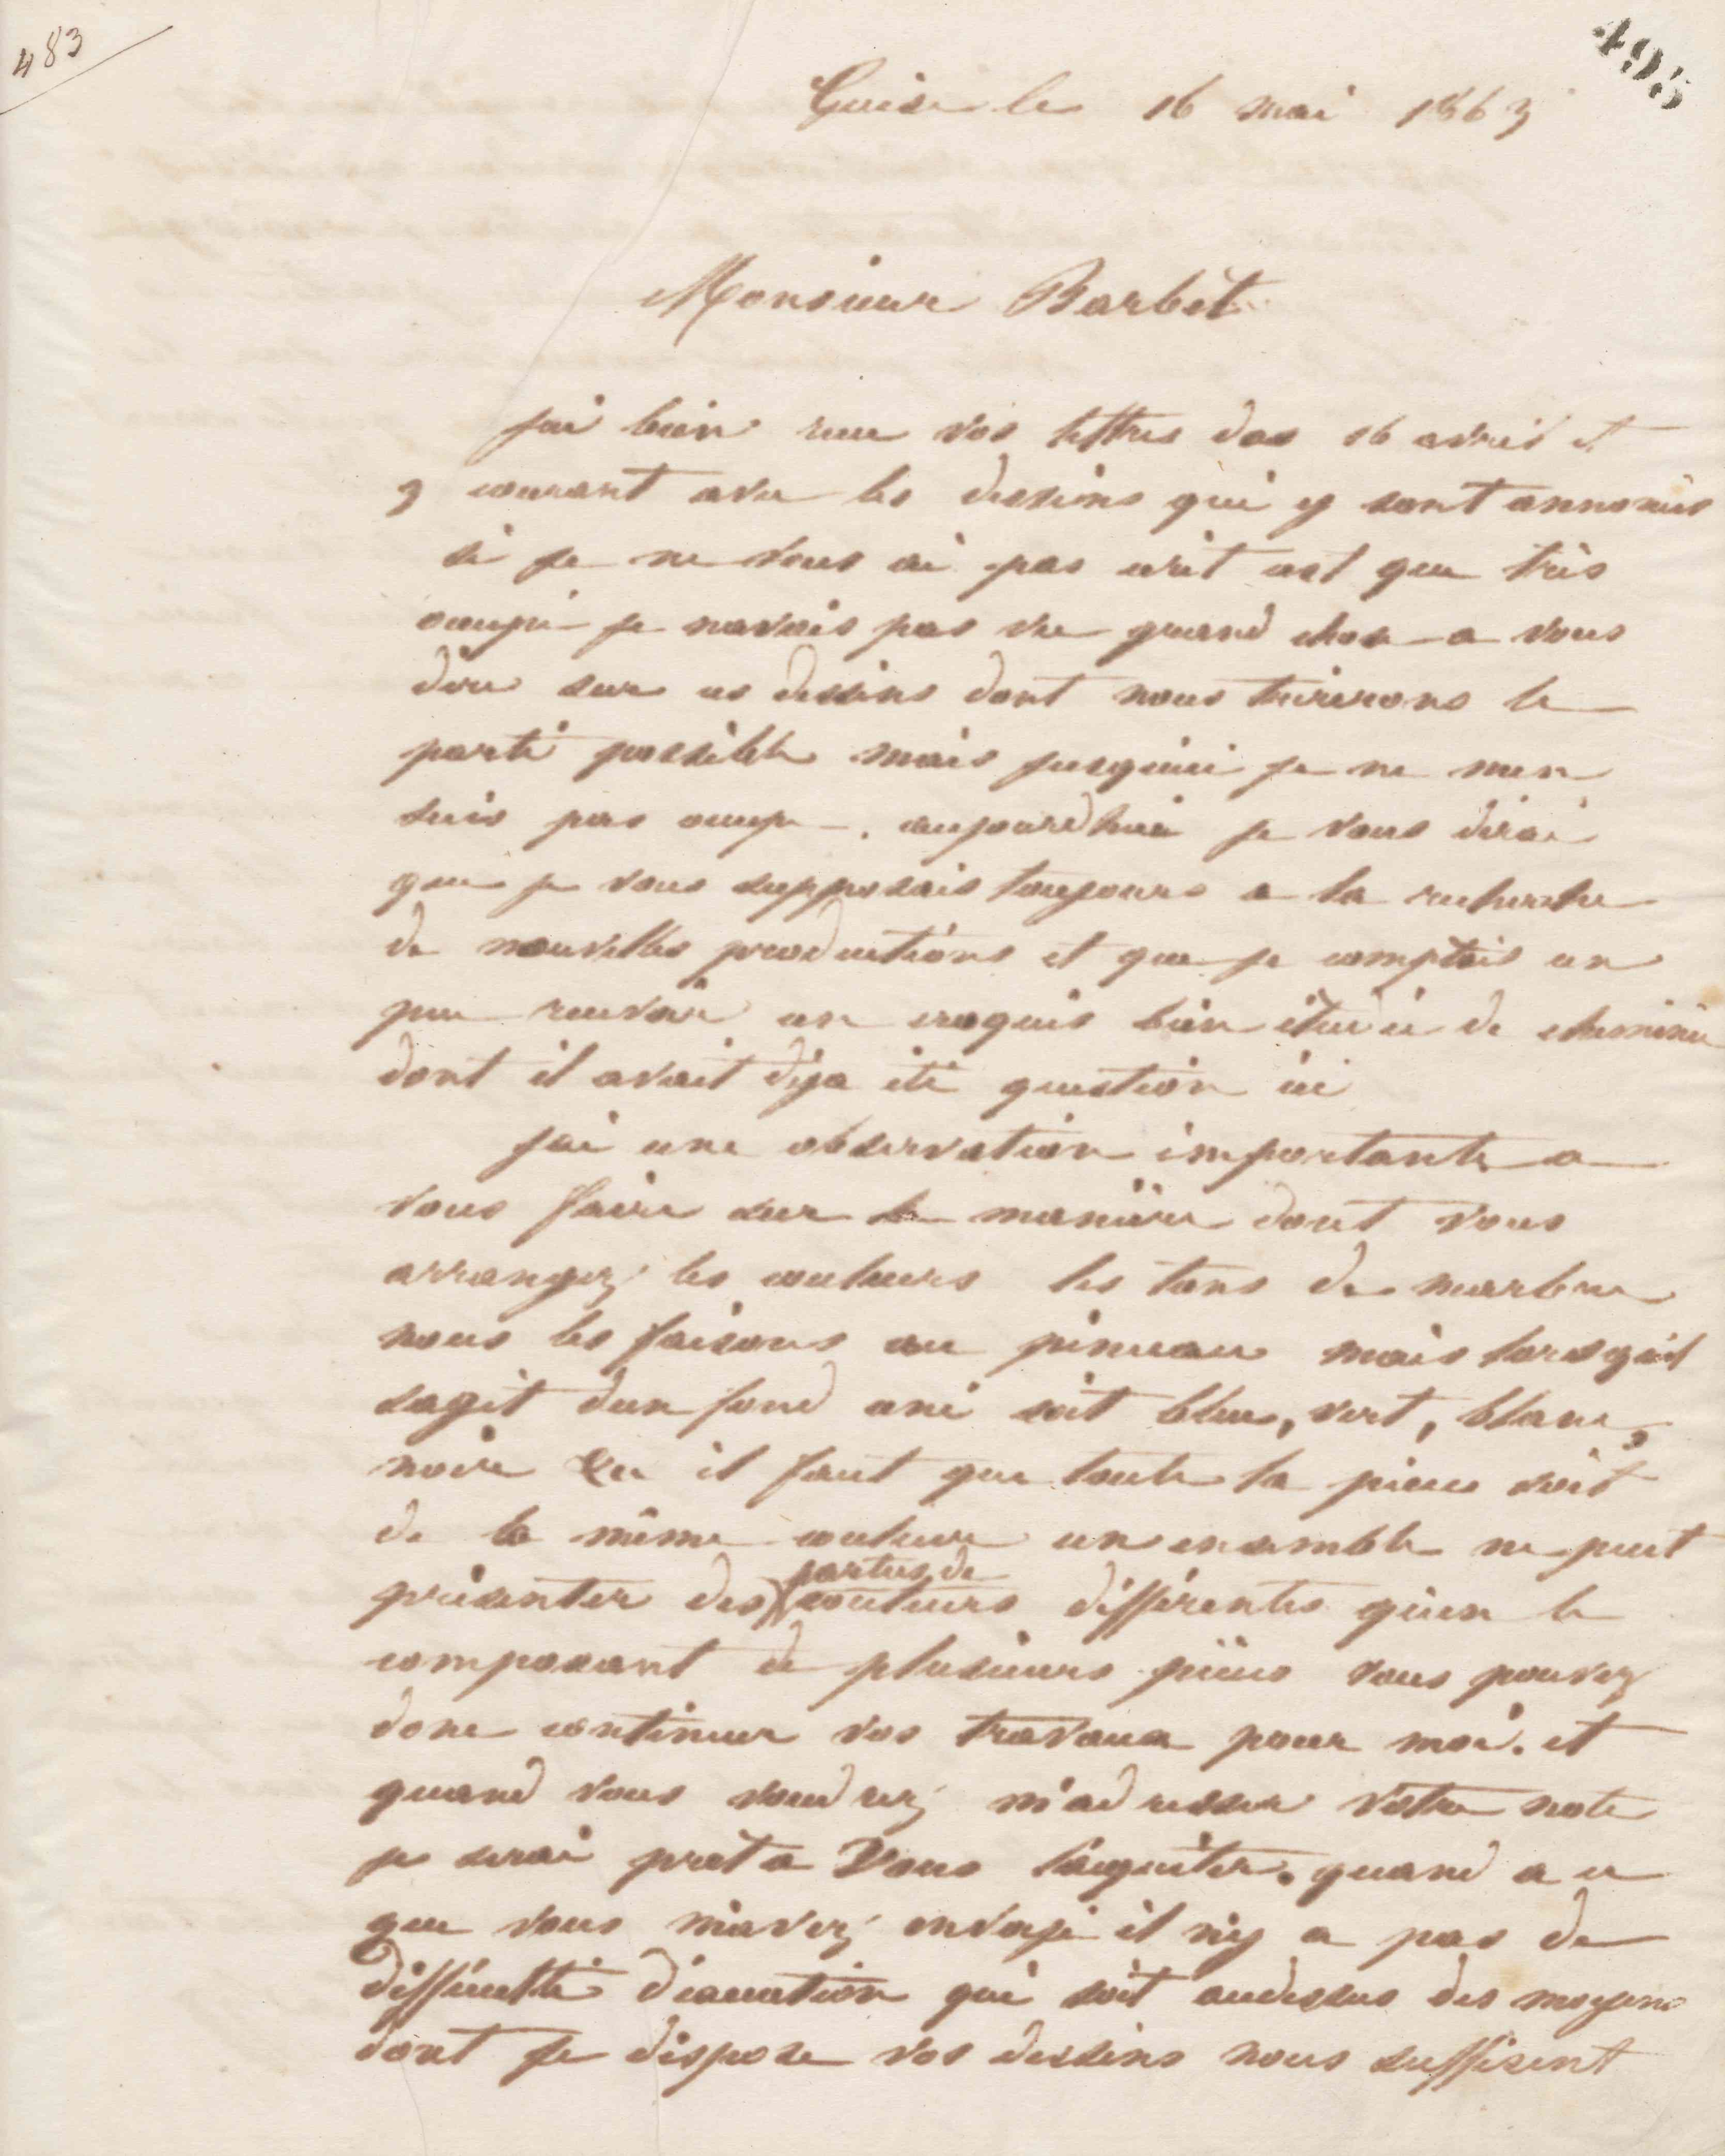 483
495
Guise le 16 mai 1863
Monsieur Barbet
jai bien recu vos lettres des 16 avril et
9 courant avec les dessins qui y sont annoncés
si je ne vous ai pas écrit cest que très
occupé je navais pas vu grand chose a vous
dire sur ces dessins dont nous tirerons le
parti possible mais jusquici je ne men
suis pas occupé. aujourdhui je vous dirai
que je vous supposais toujours a la recherche
de nouvelles productions et que je comptais un
peu recevoir un croquis bien étudié de cheminée
dont il avait déja été question ici
jai une observation importante a
vous faire sur la manière dont vous
arrangez les couleurs les tons de marbre
nous les faisons au pinceau mais lorsquil
sagit dun fond uni soit bleu, vert, blanc,
noir &a il faut que toute la pièce soit
de la même couleur un ensemble ne peut
parties de
présenter des couleurs différentes qu'en le
composant de plusieurs pièces vous pouvez
donc continuer vos travaux pour moi. et
quand vous voudrez m'adresser votre note
je serai prêt a vous l'acquiter. quand a ce
que vous m'avez envoyé il n'y a pas de
difficulté d'exécution qui soit audessus des moyens
dont je dispose vos dessins nous suffisent